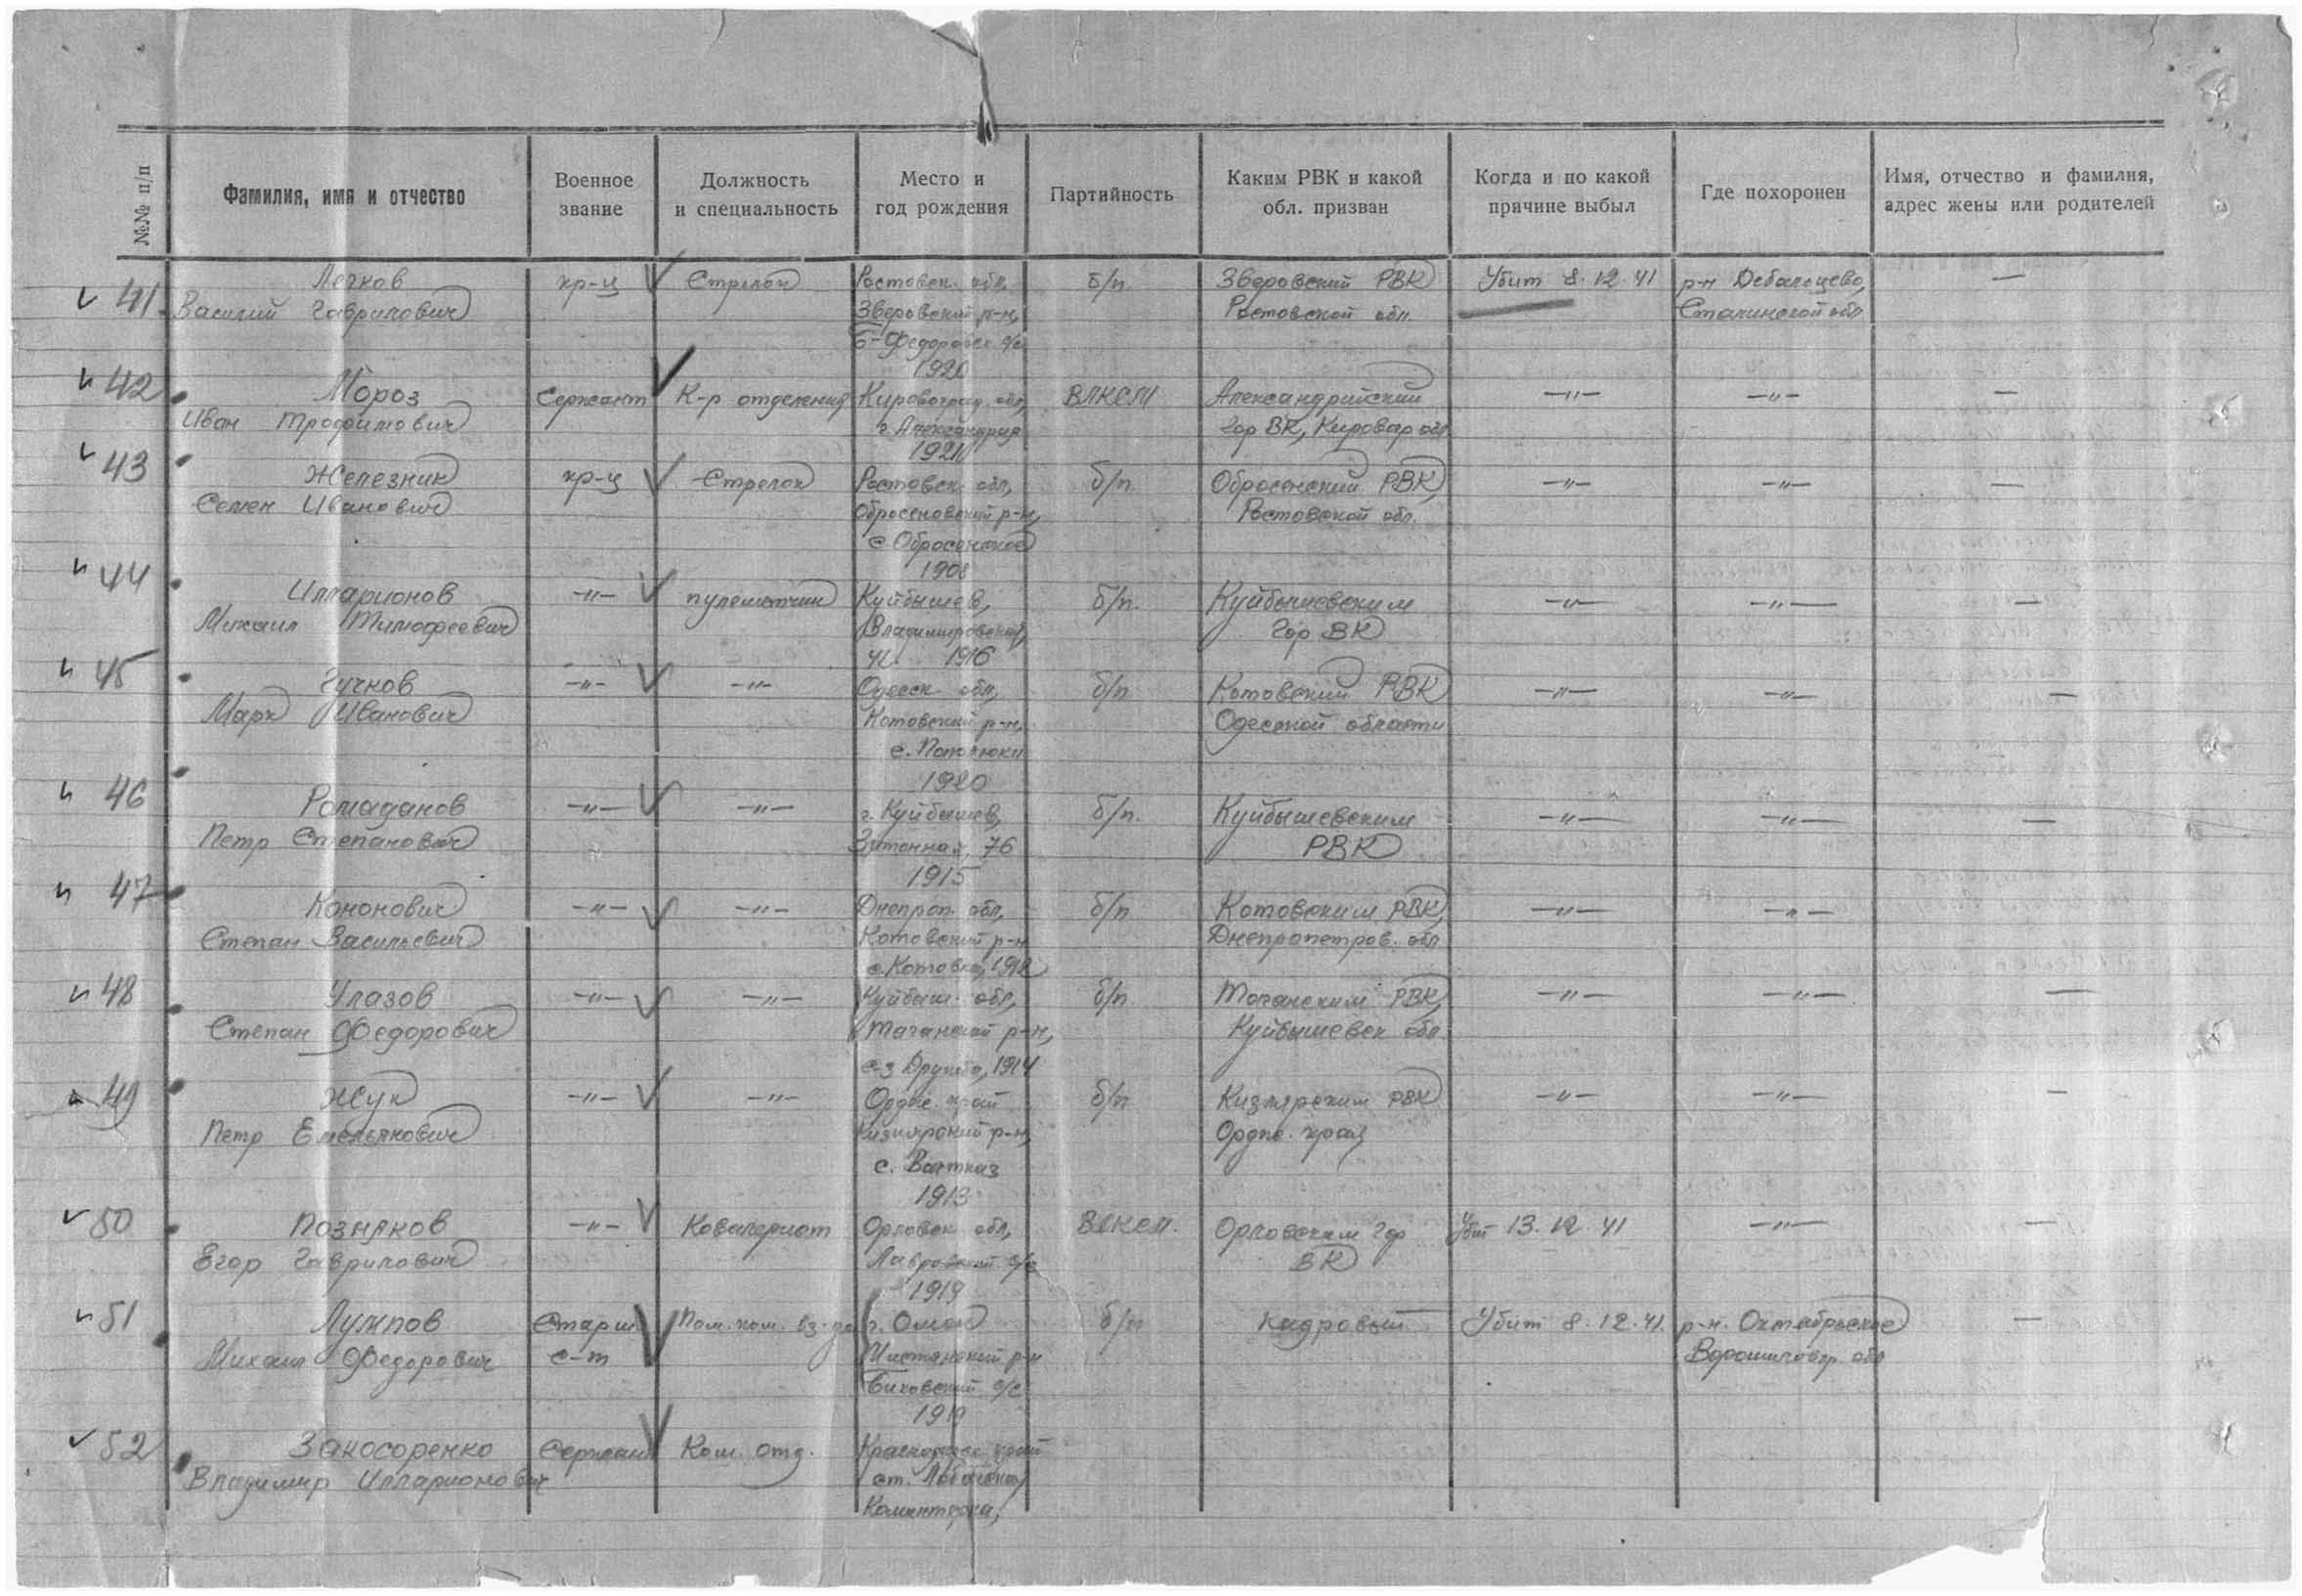 №№ п/п
Фамилия, имя и отчество
Военное
звание
Должность
и специальность
Место и
год рождения
Партийность
Каким РВК и какой
обл. призван
Когда и по какой
причине выбыл
Где похоронен
Имя, отчество и фамилия,
адрес жены или родителей
41 Легков кр-ц Стрелок Ростовск. обл. б/п. Зверовский РВК Убит 8.12.41 р-н Дебальцево, —
Василий Гаврилович Зверовский р-н, Ростовской обл. Сталинской обл.
Б-Федоровск. с/с
1920
42 Мороз Сержант К-р отделения Кировоград. обл, ВЛКСМ Александрийский —"— —"— —
Иван Трофимович г. Александрия Гор ВК, Кировогр обл
1921
43 Железник кр-ц Стрелок Ростовск. обл, б/п Обросенский РВК —"— —"— —
Семен Иванович Обросеновский р-н, Ростовской обл.
с. Обросенское
1908
44 Илларионов —"— пулеметчик Куйбышев, б/п. Куйбышевским —"— —"— —
Михаил Тимофеевич Владимировская, Гор ВК
ул. 1916
45 Гучков —"— —"— Одесск. обл, б/п Котовский РВК —"— —"— —
Марк Иванович Котовский р-н, Одесской области
с.
1920
46 Ромаданов —"— —"— г. Куйбышев, б/п. Куйбышевским —"— —"— —
Петр Степанович 76 РВК
1915
47 Кононович —"— —"— Днепроп. обл, б/п Котовским РВК, —"— —"—
Степан Васильевич Котовский р-н Днепропетров. обл
с. Котовка, 1912
48 Улазов —"— —"— Куйбыш. обл, б/п РВК, —"— —"— —
Степан Федорович р-н, Куйбышевск обл.
с-з Дружба, 1914
49 Жук —"— —"— Ордж. край б/п Кизлярским РВК —"— —"— —
Петр Емельянович Кизлярский р-н, Ордж. края
с.
1913
50 Позняков —"— Ковалерист Орловск обл, ВЛКСМ. Орловским Гор Убит 13.12.41 —"— —
Егор Гаврилович Лавровский с/с ВК
1919
51 Лумпов Старш. Пом. ком. вз-да г. Омск б/п Кадровый Убит 8.12.41. р-н. Октябрьское —
Михаил Федорович с-т р-н Ворошиловгр. обл
с/с
1919
52 Закосоренко Сержант Ком. отд. Краснодарск край
Владимир Илларионович ст.
Коминтерна,